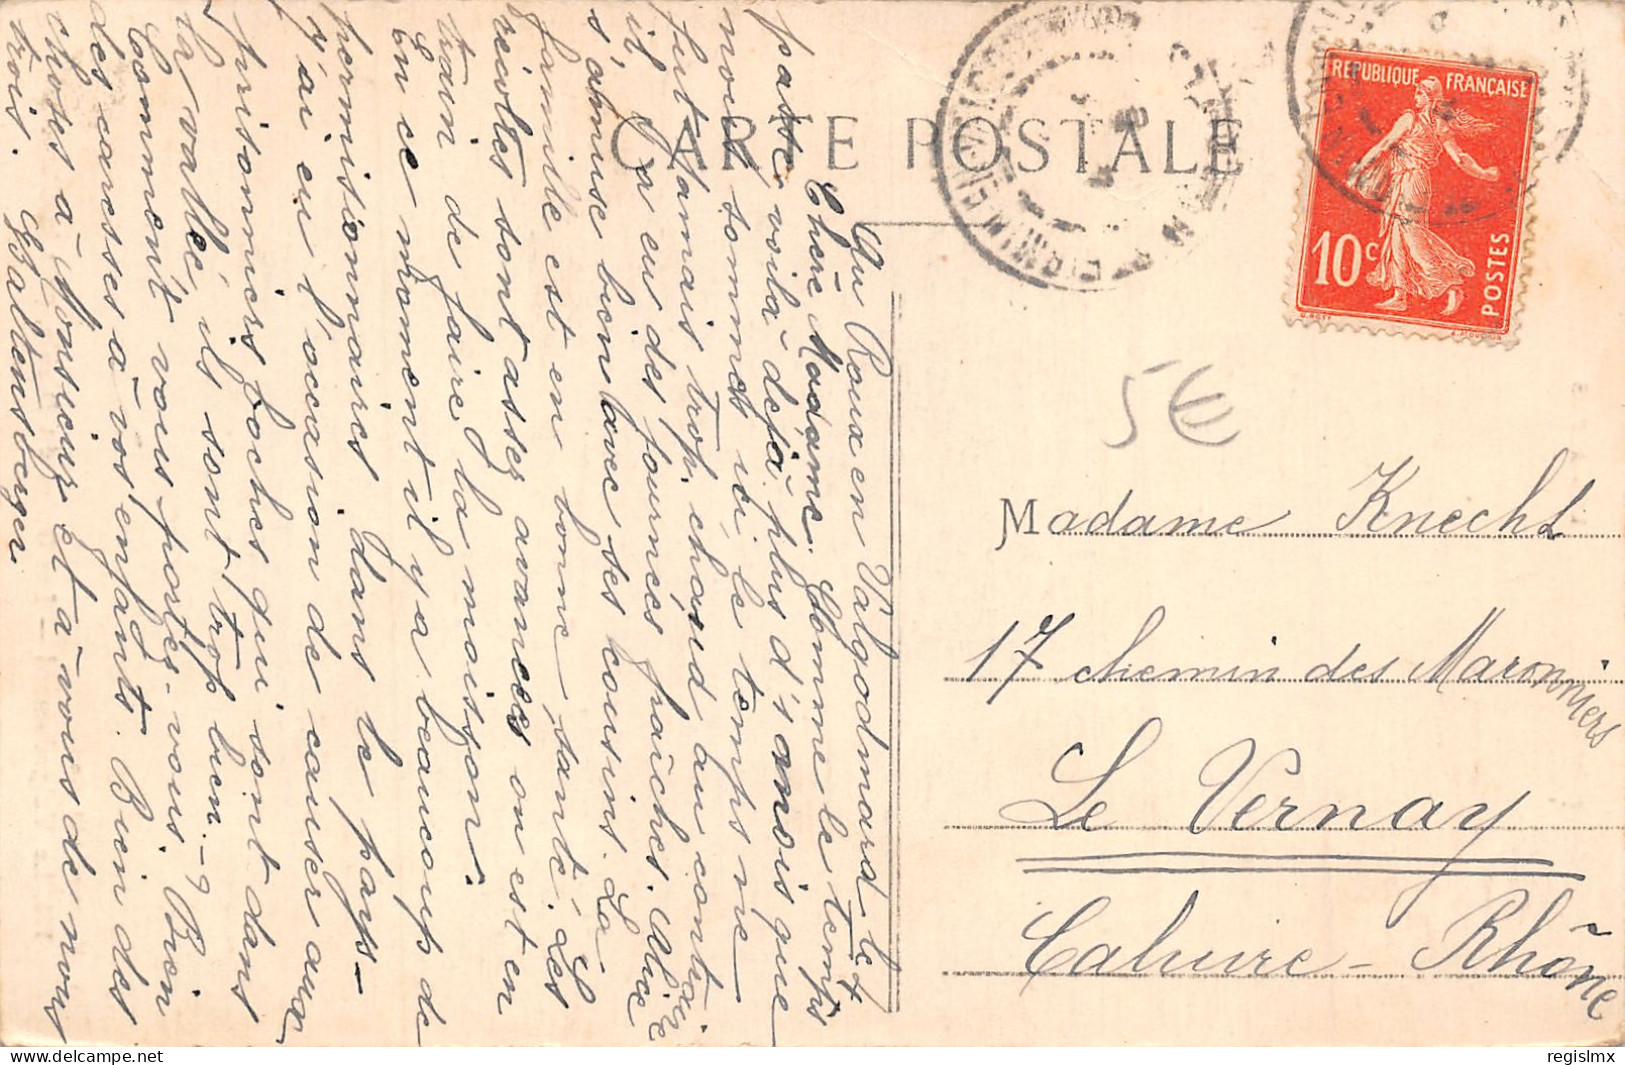 CARTE POSTALE
RÉPUBLIQUE FRANÇAISE
10c
POSTES
5€
Au Roux en Valgodmard le 7
Chère Madame. Comme le temps
passe voilà déjà plus d's mois que
nous sommes ici le temps ne
fut jamais trop chaud au contraire
il y a eu des journées fraîches. Alice
s'amuse bien avec ses cousins. La
famille est en bonne santé. Les
récoltes sont assez avancées on est en
train de faire la moisson.
En ce moment il y a beaucoup de
permissionnaires dans le pays-
J'ai eu l'occasion de causer aux
prisonniers boches qui sont dans
la vallée, ils sont trop bien.-
Comment vous portez-vous. Bien
des caresses à vos enfants. Bien des
choses à Monsieur et à vous de nous
trois. Galtensburger
Madame Knecht
17 chemin des Maronniers
Le Vernay
Caluire - Rhône
regislmx